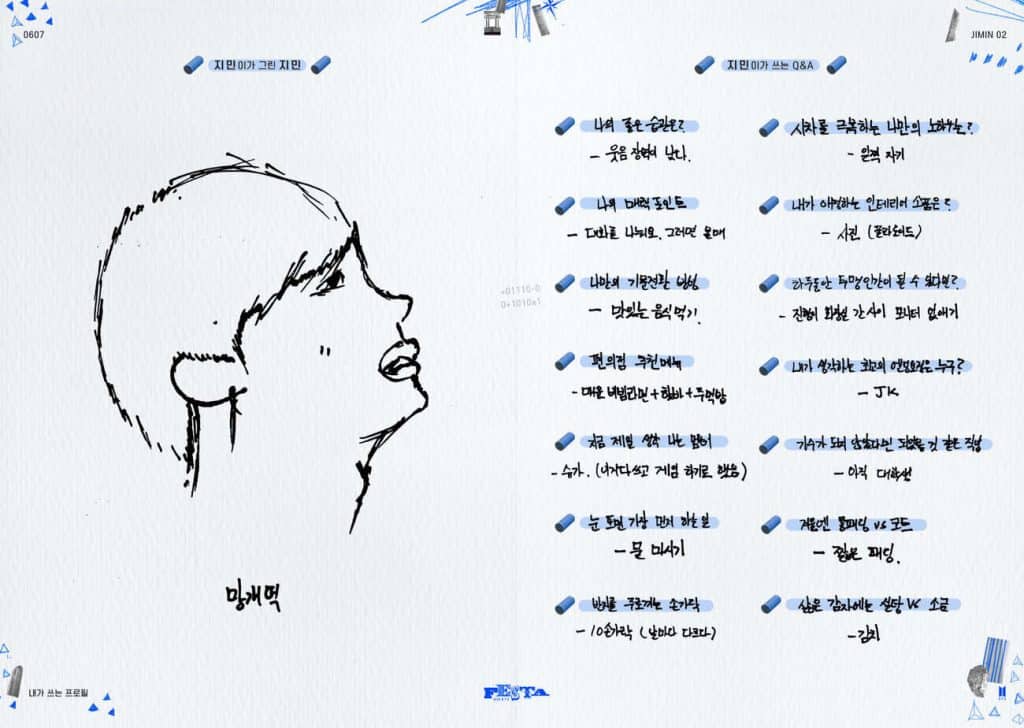 0607
JIMIN 02
지민이가 그린 지민
지민이가 쓰는 Q&A
나의 좋은 습관은?
- 웃음 장벽이 낮다.
나의 매력 포인트
- 대화를 나눠봐요. 그러면 알매
나만의 기분전환 방법
- 맛있는 음식 먹기.
편의점 추천메뉴
- 매운 비빔라면 + 핫바 + 주먹밥
지금 제일 생각 나는 멤버
- 슈가. (나 이거 다 쓰고 게임 하기로 했음)
눈 뜨면 가장 먼저 하는 일
- 물 마시기
반지를 주로 끼는 손가락
- 10손가락 (날마다 다르다)
시차를 극복하는 나만의 노하우는?
- 일찍 자기
내가 애정하는 인테리어 소품은?
- 사진 (폴라로이드)
하루동안 투명인간이 될 수 있다면?
- 진형이 화장실 간 사이 모니터 없애기
내가 생각하는 최고의 엔딩요정은 누구?
- JK
가수가 되지 않았다면 되었을 것 같은 직업
- 아직 대학생
겨울엔 롱패딩 vs 코트
- 짧은 패딩.
삶은 감자에는 설탕 vs 소금
- 김치
+01110-0
0+1010x1
망개떡
내가 쓰는 프로필
FESTA